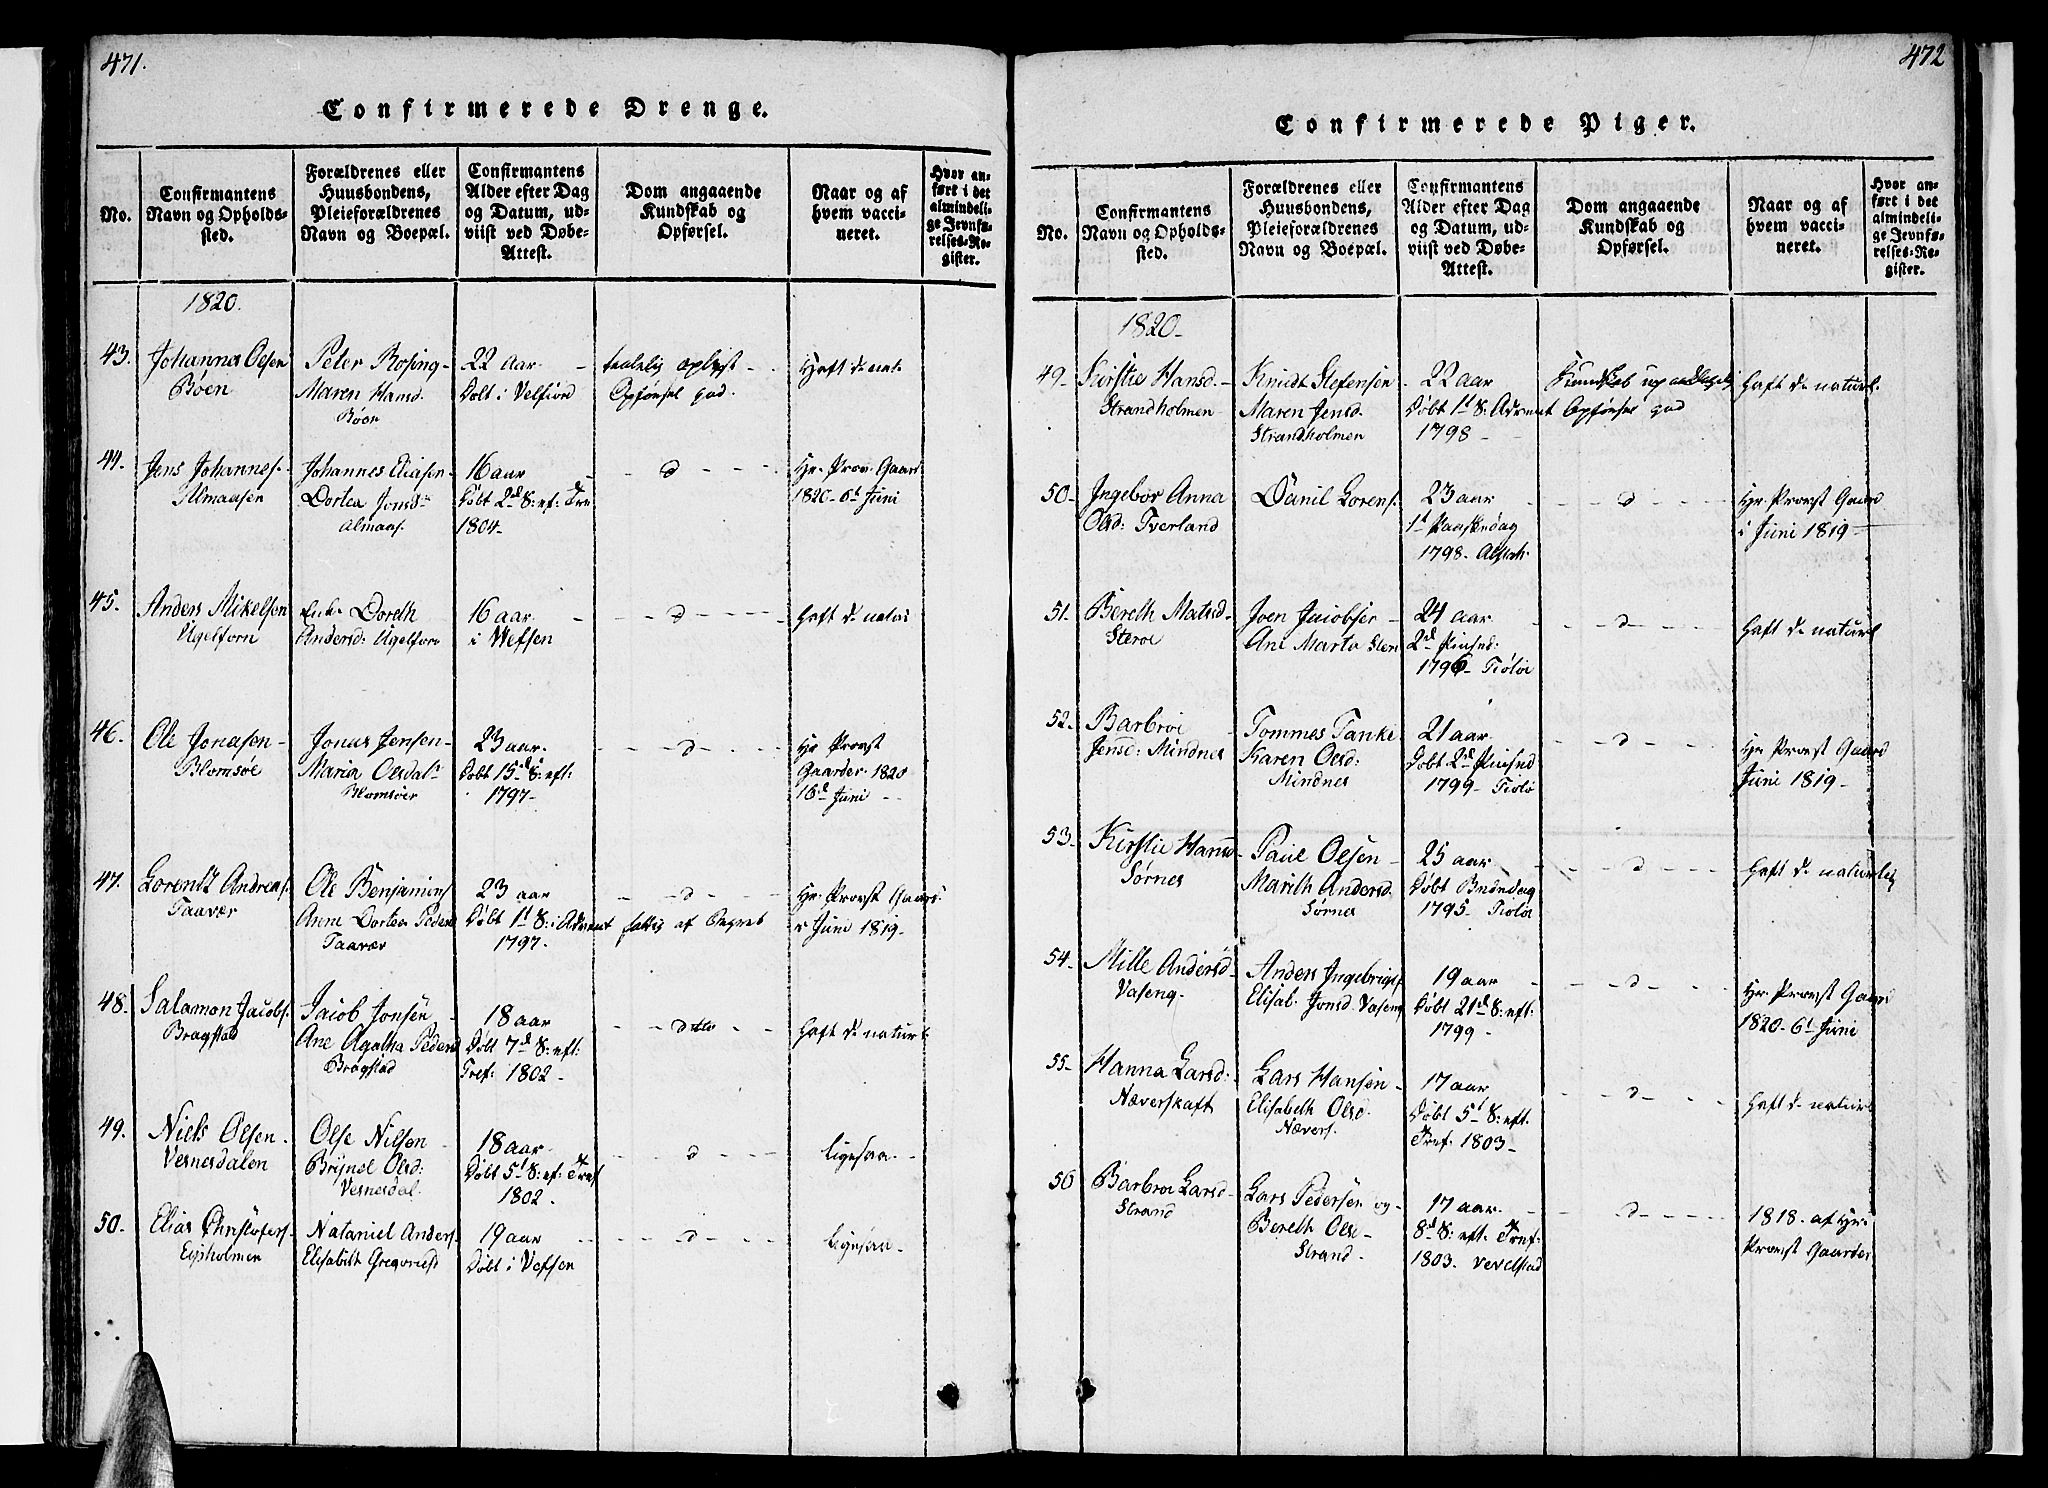 471.
Confirmerede Drenge.
No.
Confirmantens
Navn og Opholds-
sted.
Forældrenes eller
Huusbondens,
Pleieforældrenes
Navn og Boepæl.
Confirmantens
Alder efter Dag
og Datum, ud-
viist ved Døbe-
Attest.
Dom angaaende
Kundskab og
Opførsel.
Naar og af
hvem vacci-
neret.
Hvor an-
ført i det
almindeli-
ge Jevnfø-
relses-Re-
gister.
1820.
43.
Johannes Olsen
Bøen
Peter Rosing
Maren Hansd.
Bøen
22 aar
Døbt i Velfiord
taalelig oplyst
Opførsel god.
Haft de nat.
44.
Jens Johannes.
Almaasen
Johannes Eliasen
Dortea Jonsd
Almaas.
16 aar
Døbt 2d S: ef: Tre
1804.
d
Hr. Prov. Gaard
1820 6t Juni
45.
Anders Mikelsen
Ugelforn
Enke Doreth
Andersd: Ugelforn
16 aar
i Vefsen
d
Haft d. natur
46.
Ole Jonasen
Blomsøe
Jonas Jensen
Maria Olsdat
Blomsøer
23 aar.
Døbt 15d S: eft:
1797
d
Hr Provst
Gaarder 1820
16d Juni
47.
Lorentz Andreas.
Taavær
Ole Benjamins
Anne Dortea Peders
Taavær
23 aar
Døbt 1t S: i Advent
1797.
d
fattig af Begreb
Hr. Provst Gaard:
i Juni 1819.
48.
Salamon Jacobs.
Brøgstad
Jacob Jonsen
Ane Agatha Pedersd
Brøgstad
18 aar
Døbt 7d S: eft:
Tref: 1802
ditto
Haft d. naturl
49.
Niels Olsen
Vesnesdalen
Olse Nilsen
Brynel Olsd:
Vesnesdal.
18 aar
Døbt 5t S: ef: Tref
1802.
d
Ligesaa
50.
Elias Christofers.
Eysholmen
Nataniel Anders.
Elisabeth Gregoriusd
19 aar
Døbt i Vefsen
d
Ligesaa
472
Confirmerede Piger.
No.
Confirmantens
Navn og Opholds-
sted.
Forældrenes eller
Huusbondens,
Pleieforældrenes
Navn og Boepæl.
Confirmantens
Alder efter Dag
og Datum, ud-
viist ved Døbe-
Attest.
Dom angaaende
Kundskab og
Opførsel.
Naar og af
hvem vacci-
neret.
Hvor an-
ført i det
almindeli-
ge Jevnfø-
relses-Re-
gister.
1820
49
Kirstie Hansd.
Strandholmen
Knudt Stefensen
Maren Jensd.
Strandholmen
22 aar
Døbt 1t S: Advent
1798
Kundskab
Opførsel god
Haft d. naturl.
50
Ingebor Anna
Olsd: Tverland
Danil Lorens.
23 aar
1t Paaskedag
1798.
d
Hr Provst Gaard
i Juni 1819
51.
Bereth Matsd
Steroe
Joen Jacobsen
Ane Marta Stero
24 aar
2d Pinsed:
1796 Tiøtøe
d
Haft d. naturl
52.
Barbroe
Jensd: Mindnes
Tommes Tanke
Karen Olsd:
Mindnes
21 aar
Døbt 2d Pinsed
1799 Tiøtø
d
Hr Provst Gaard
Juni 1819
53
Kirstie Hansd
Sørnes
Paul Olsen
Marith Andersd
Sørnes
25 aar
Døbt Bededag
1795 Tiotøe
d
Haft d. naturlig
54
Mille Andersd
Vaseng.
Anders Ingebrigs.
Elisab. Jonsd Vaseng
19 aar
Døbt 21d S: eft:
1799
d
Hr. Provst Gaard
1820 6t Juni
55
Hanna Larsd:
Næverskaft
Lars Hansen
Elisabeth Olsd.
Nævers.
17 aar
Døbt 5t S: eft.
Tref: 1803
d
Haft d. naturl
56
Barbroe Larsd
Strand
Lars Pedersen og
Bereth Ols
Strand
17 aar
8d S: eft. Tref:
1803. Vevelstad
d
1818. af Hr.
Provst Gaarder